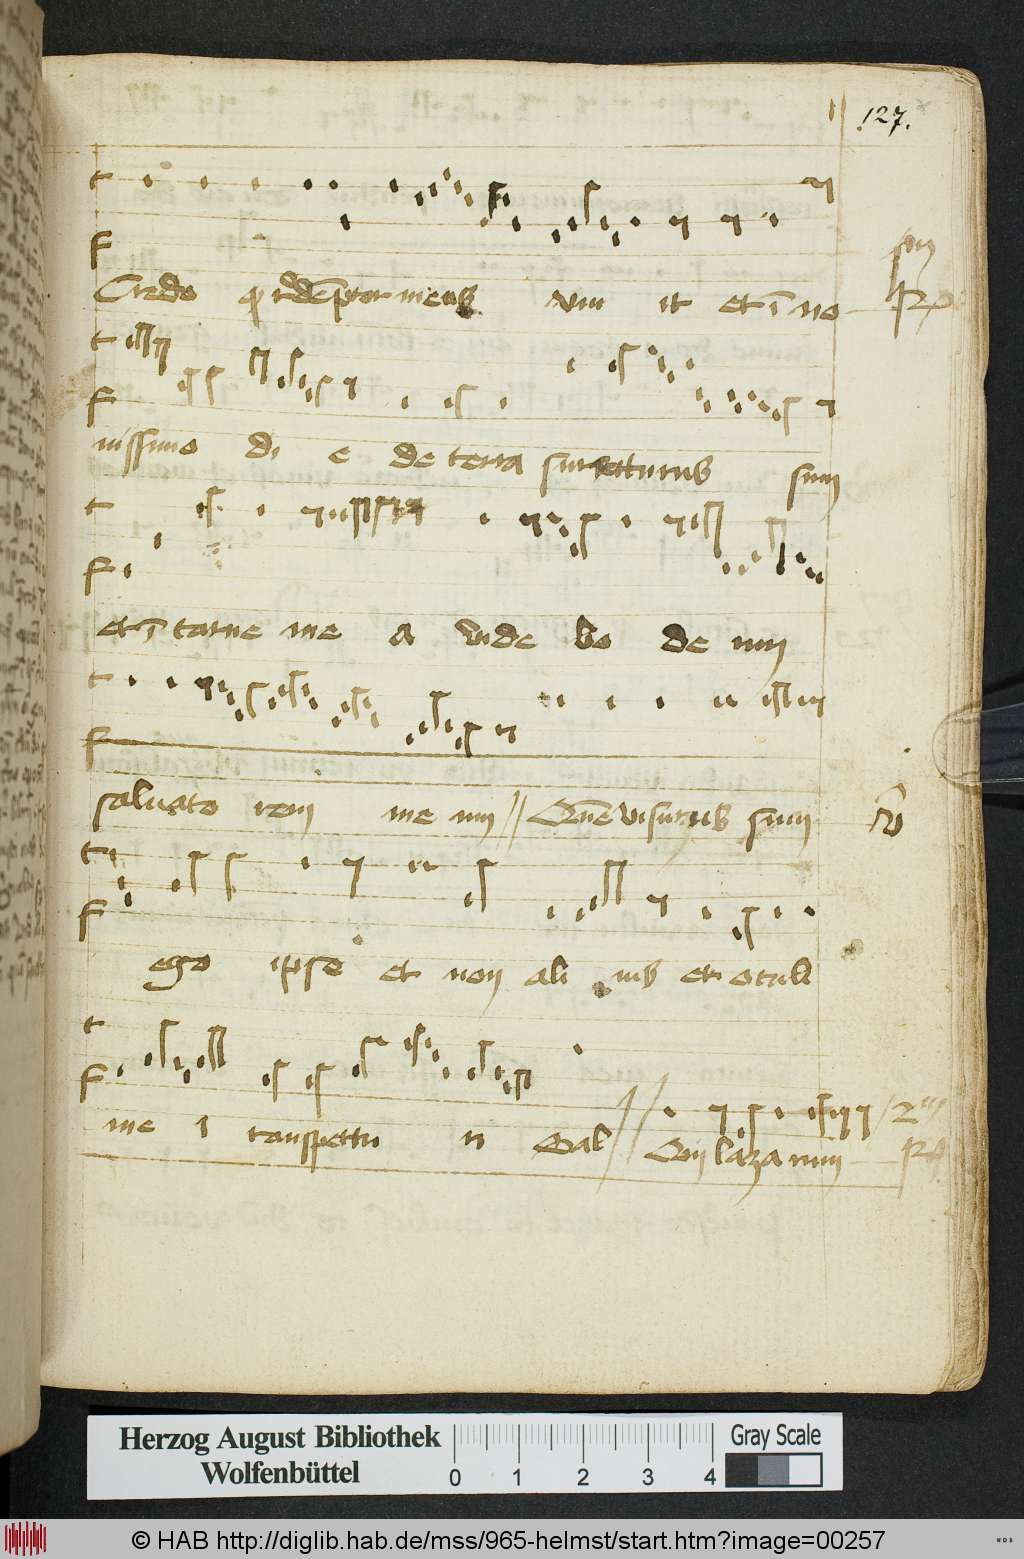 127.
Credo q̄ redēptor meus viu it et ī no
pm
R
nissimo di e de terra surrecturus sum
et ī carne me a vide bo de um
saluato rem me um // Quē visurus sum
V
ego ipse et non ali us et oculi
me i conspecturi n Sal // 2m
Qui lazarum R
Herzog August Bibliothek
Wolfenbüttel
0 1 2 3 4
Gray Scale
© HAB http://diglib.hab.de/mss/965-helmst/start.htm?image=00257